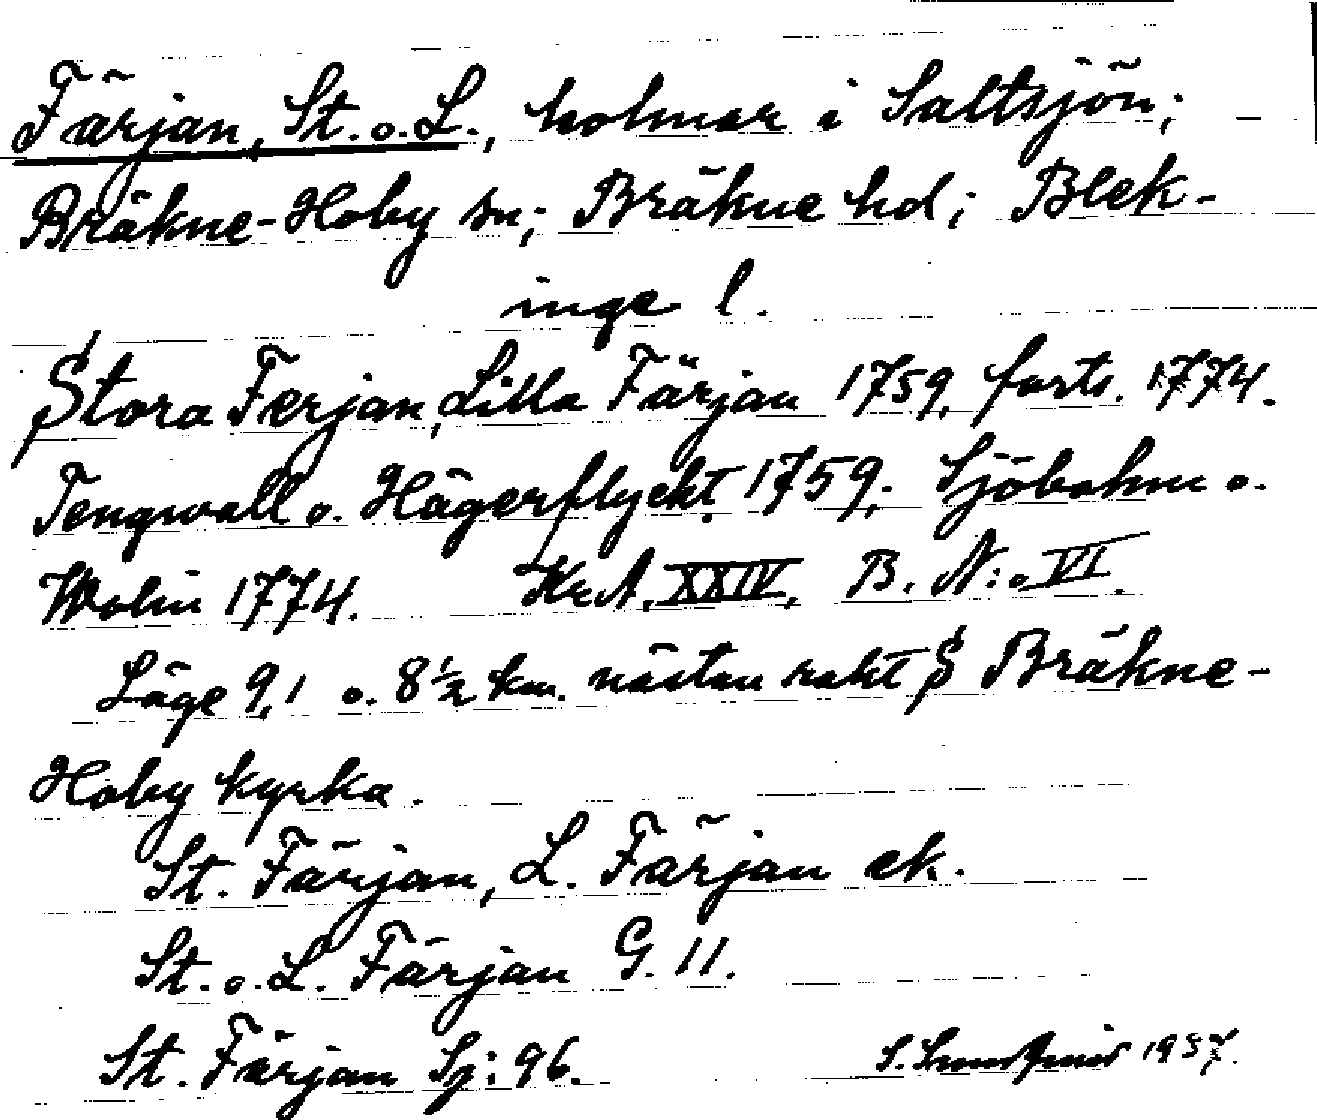 Färjan, St. o. L., holmar i Saltsjön;
Bräkne-Hoby sn; Bräkne hd; Blek-
inge l.
Stora Ferjan, Lilla Färjan 1759, forts. 1774.
Tengwall o. Hägerflyckt 1759; Sjöbohm o.
Wolin 1774. Kr.A. XXIV, B. N:o VI.
Läge 9,1 o. 8½ km. nästan rakt S Bräkne-
Hoby kyrka.
St. Färjan, L. Färjan ek.
St. o. L. Färjan G. 11.
St. Färjan Sj: 96. S. 1937.